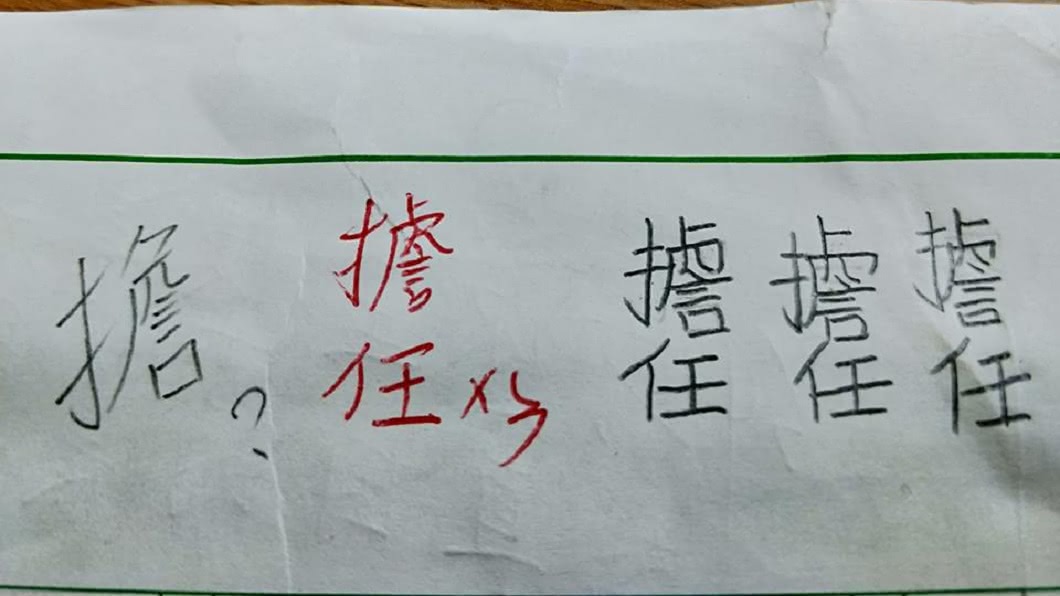 擔?
擔任×3
擔任
擔任
擔任